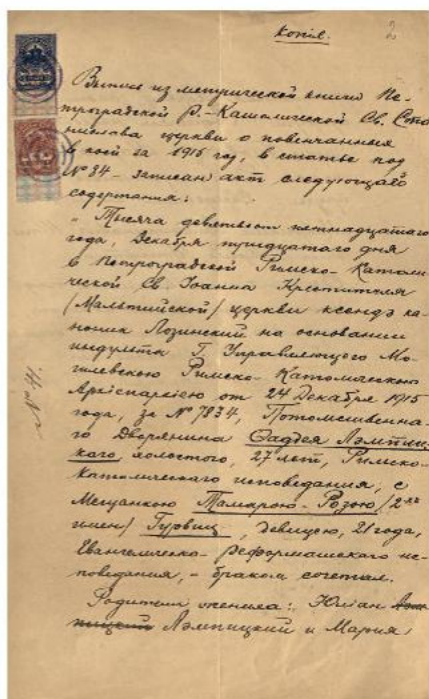 Копія.
2
Выпис из метрической книги Пе-
троградской Р.-Католической Св. Ста-
нислава церкви о повенчанных
в коей за 1915 год, в статье под
№ 34 - записан акт следующаго
содержания:
"Тысяча девятьсот пятнадцатого
года, Декабря тридцатаго дня
в Петроградской Римско-Католи-
ческой Св. Іоанна Крестителя
/Мальтийской/ церкви ксендз ка-
ноник Лозинский на основании
индульта Г. Управляющего Мо-
гилевскою Римско-Католическою
Архіепархіею от 24 Декабря 1915
года, за № 7834, Потомственна-
го Дворянина Фаддея Лэмпиц-
кого холостого, 27 лет, Римско-
Католического исповедания, с
Мещанкою Тамарою-Розою /2-х
имен/ Гурвиц, девицею, 21 года,
Евангелическо-Реформатского ис-
поведания, - браком сочетал.
Родители жениха: Юліан Лэм-
пицкий Лэмпицкий и Мария,
№ 41.